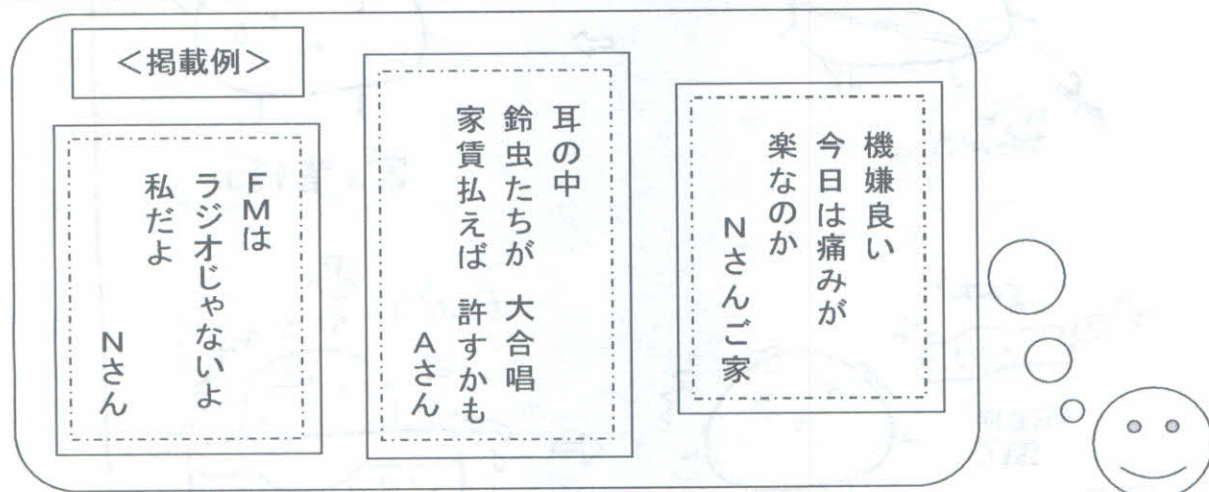 <掲載例>
機嫌良い
今日は痛みが
楽なのか
Nさんご家
耳の中
鈴虫たちが 大合唱
家賃払えば 許すかも
Aさん
FMは
ラジオじゃないよ
私だよ
Nさん